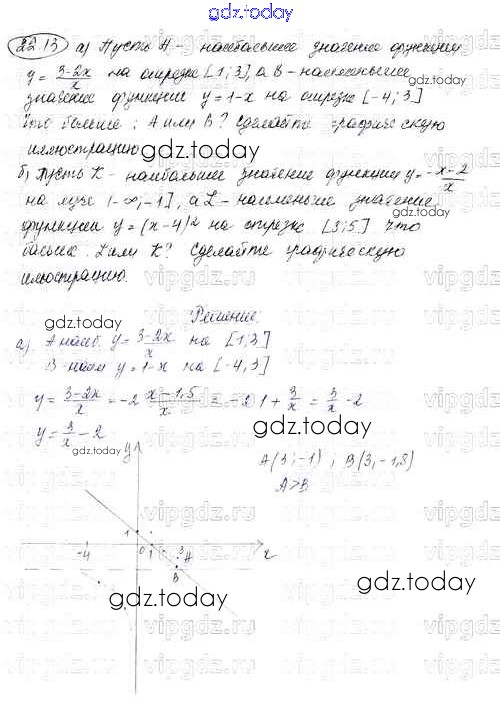 gdz.today
22.13 а) Пусть А - наибольшее значение функции
y = 3-2x/x на отрезке [1; 3], а В - наименьшее
значение функции y = 1-x на отрезке [-4; 3]
Что больше: А или В? Сделайте графическую
иллюстрацию
gdz.today
б) Пусть К - наибольшее значение функции y = -x-2/x
на луче (-∞; -1], а L - наименьшее значение
функции y = (x-4)² на отрезке [3; 5] Что
больше: L или К? Сделайте графическую
иллюстрацию.
gdz.today
Решение
а) А наиб. y = 3-2x/x на [1; 3]
В наим y = 1-x на [-4, 3]
y = 3-2x/x = -2 x-1,5/x = -2 1 + 3/x = 3/x - 2
y = 3/x - 2
gdz.today
A(3; -1) ; B(3, -1,8)
A > B
y
1
-4 0 1 3 x
A
B
gdz.today
gdz.today
vipgdz.ru